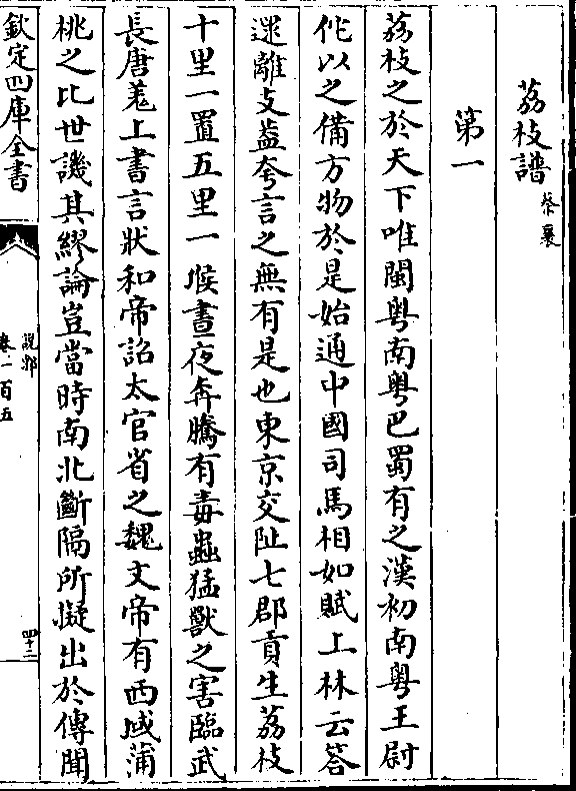 荔枝譜蔡襄
第一
荔枝之於天下唯閩粤南粤巴蜀有之漢初南粤王尉
佗以之備方物於是始通中國司馬相如賦上林云答
遝離支葢夸言之無有是也東京交阯七郡貢生荔枝
十里一置五里一堠晝夜奔騰有毒蟲猛獸之害臨武
長唐羌上書言狀和帝詔太官省之魏文帝有西域蒲
桃之比世譏其繆論豈當時南北斷隔所擬出於傳聞
欽定四庫全書
說郛
卷一百五
四十二